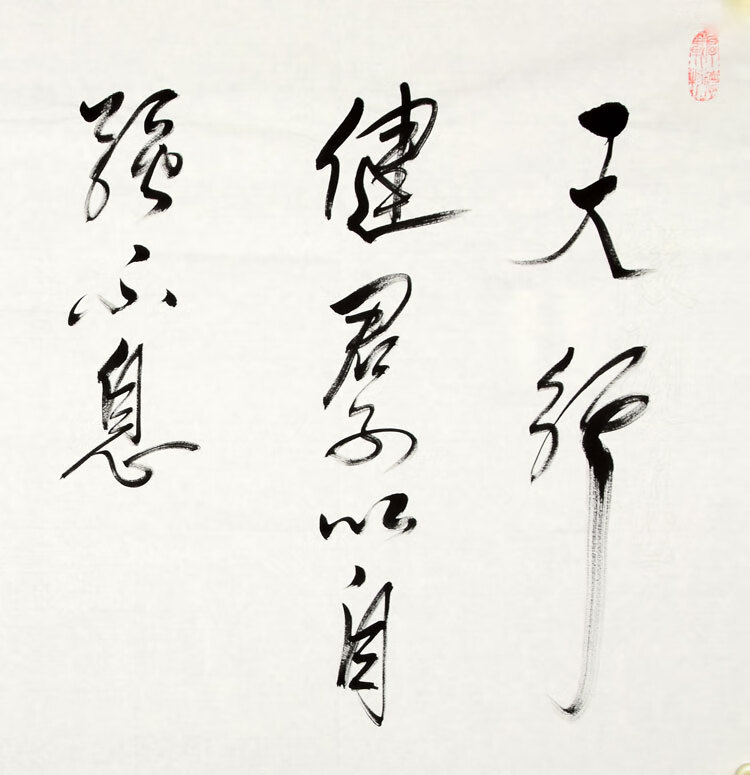 天行
健君子以自
强不息